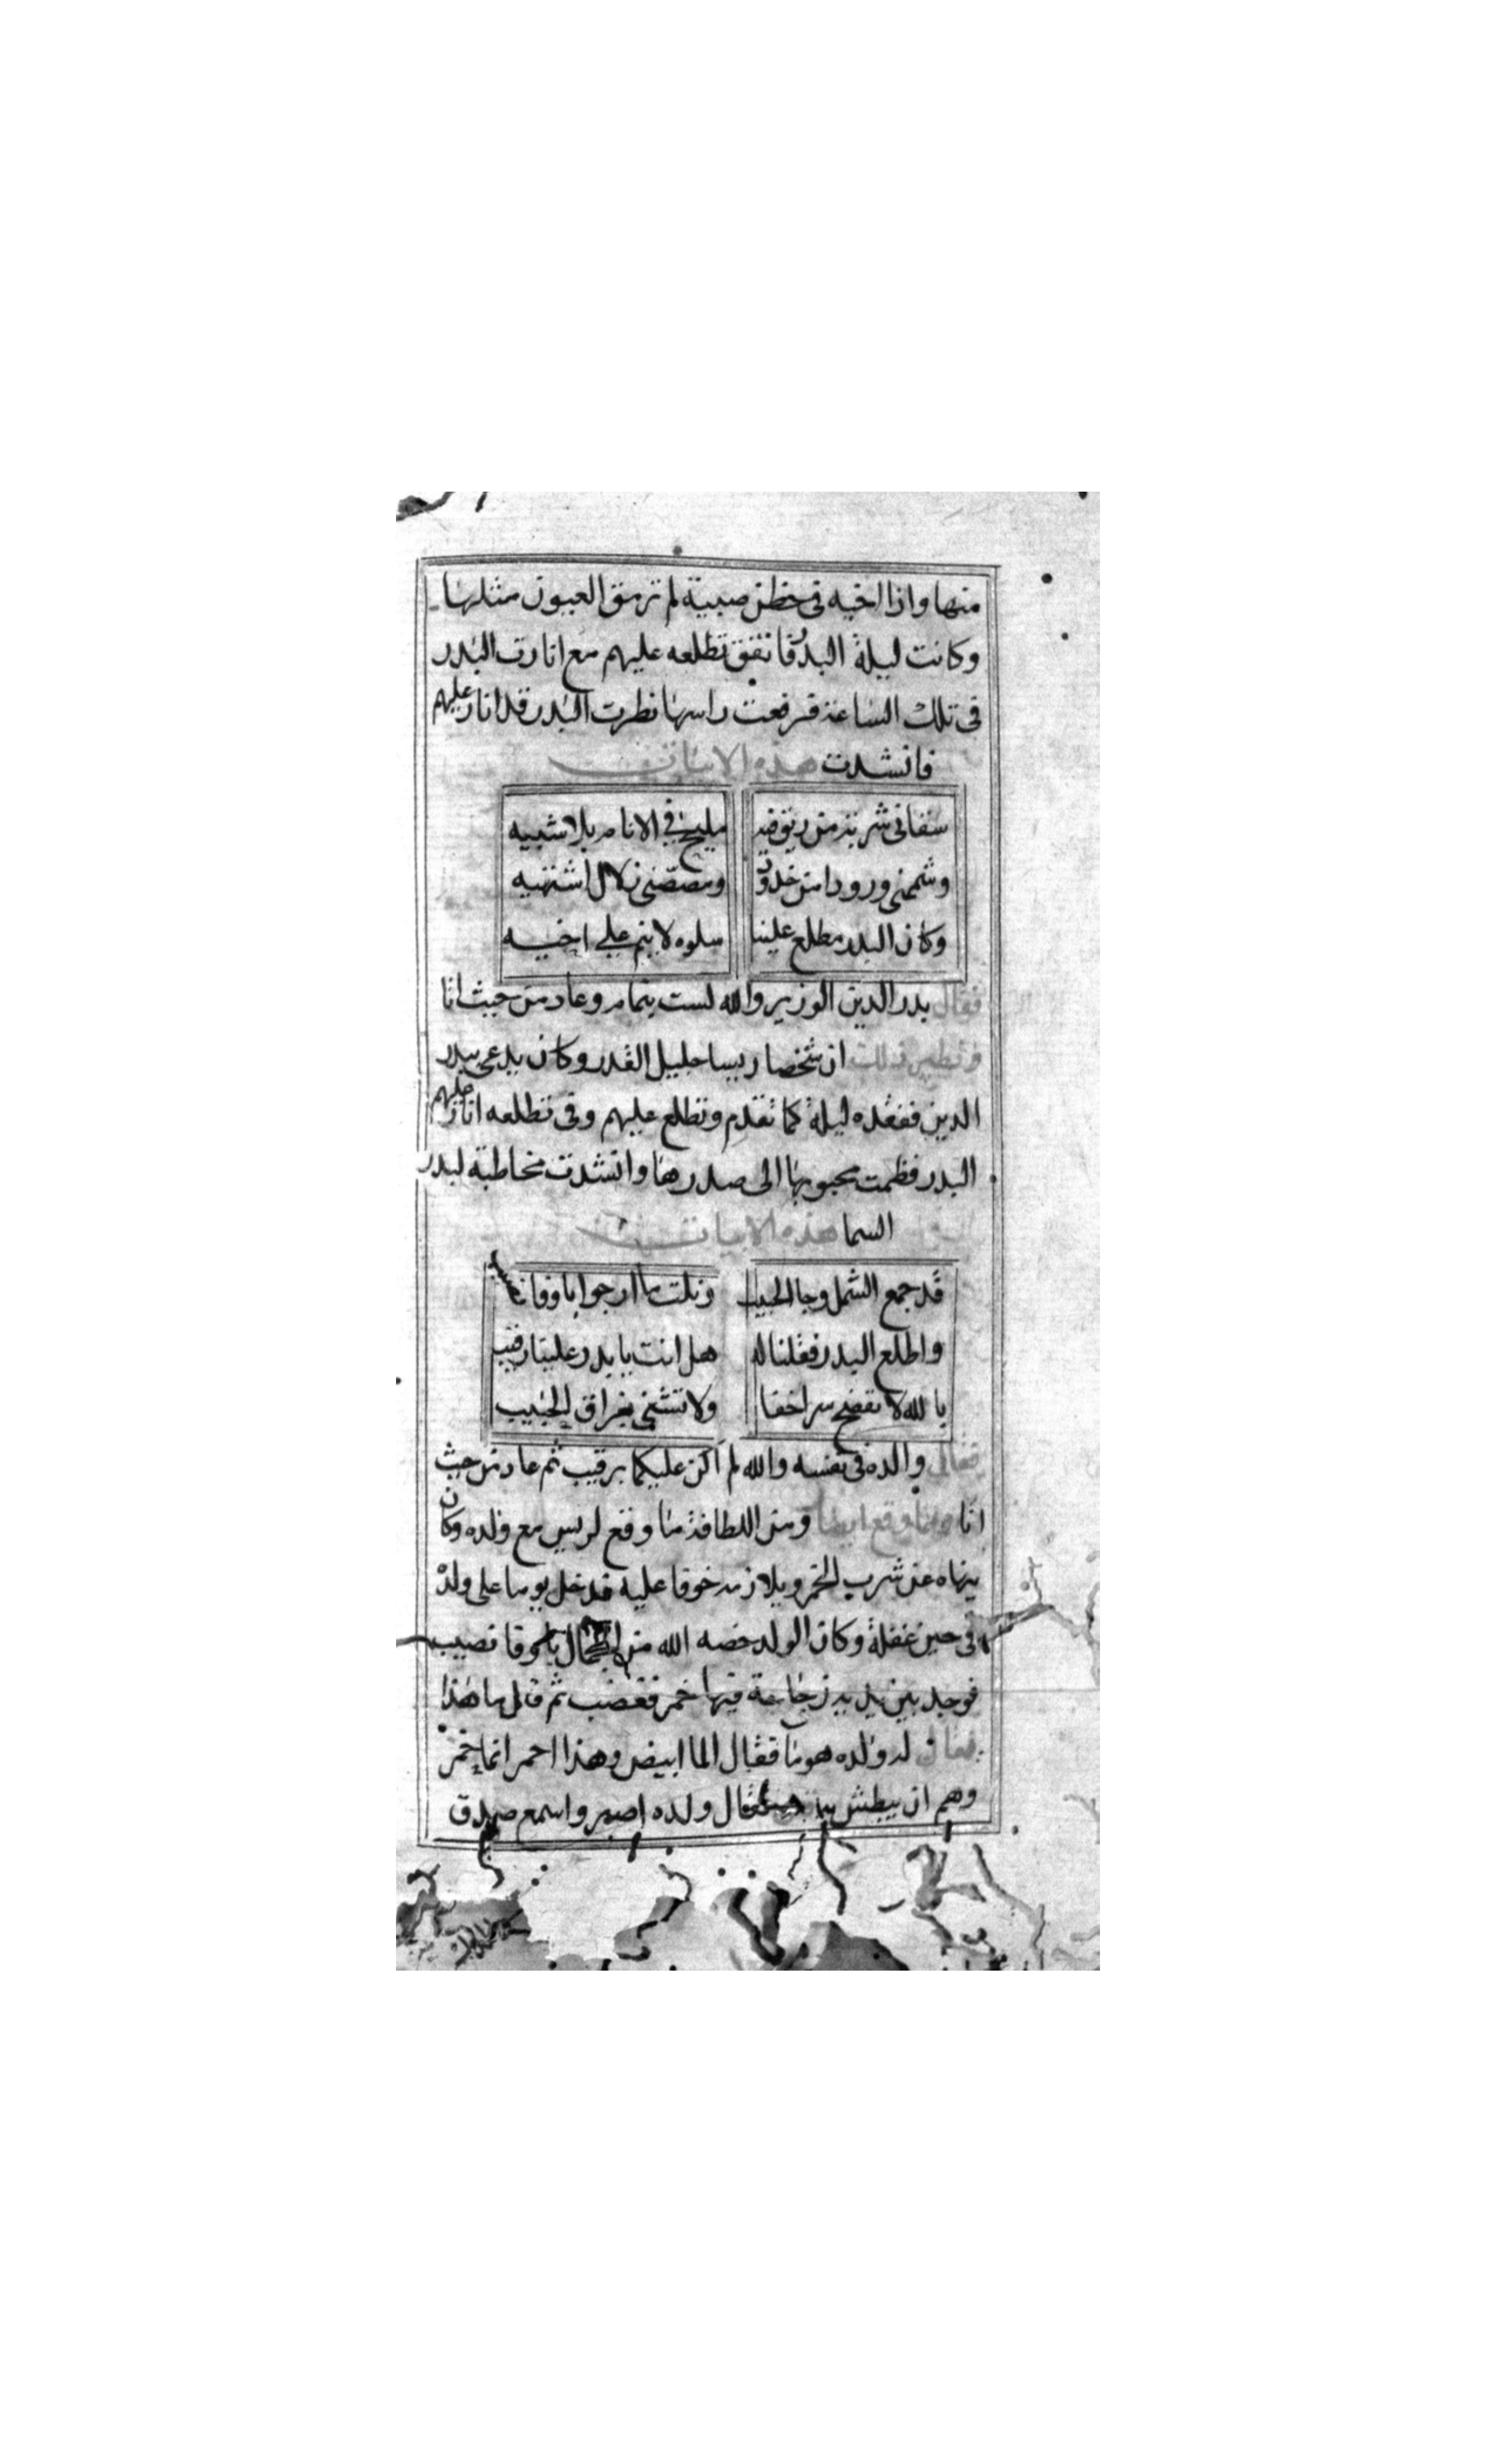 منها واذا اخيه فى حظن صبية لم ترمق العيون مثلها
وكانت ليلة البدر فاتفق تطلعه عليهم مع انارت البدر
فى تلك الساعة فرفعت راسها نظرت البدر قد انار عليهم
فانشدت هذه الابيات
سقانى شربة من ريق فيه مليح فى الانام بلا شبيه
وشممنى ورودا من خدود ومصصنى زلال اشتهيه
وكان البدر مطلع علينا سلوه لا ينم على اخيه
فقال بدر الدين الوزير والله لست بنمام وعاد من حيث اتا
ونظير ذلك ان شخصا ريسا جليل القدر وكان يدعى ببدر
الدين ففقده ليلة كما تقدم وتطلع عليهم وفى تطلعه انار عليهم
البدر فظمت محبوبها الى صدرها وانشدت مخاطبة لبدر
السما هذه الابيات
قد جمع الشمل وجا الحبيب ونلت ما ارجوا
واطلع البدر فقلنا له هل انت يا بدر علينا رقيب
بالله لا تفضح سر اخفا ولا تشفى بفراق الحبيب
فقال والده فى نفسه والله لم اكن عليكما برقيب ثم عاد من حيث
اتا ومما وقع ايضا ومن اللطافة ما وقع لريس مع ولده وكان
ينهاه عن شرب الخمر ويلازمه خوفا عليه فدخل يوما على ولده
فى حين غفلة وكان الولد خصه الله من الجمال باوفا نصيب
فوجد بين يديه زجاجة فيها خمر فغضب ثم قال ما هذا
فقال له ولده هو ما فقال الما ابيض وهذا احمر انما خمر
وهم ان يبطش به فقال ولده اصبر واسمع صدق